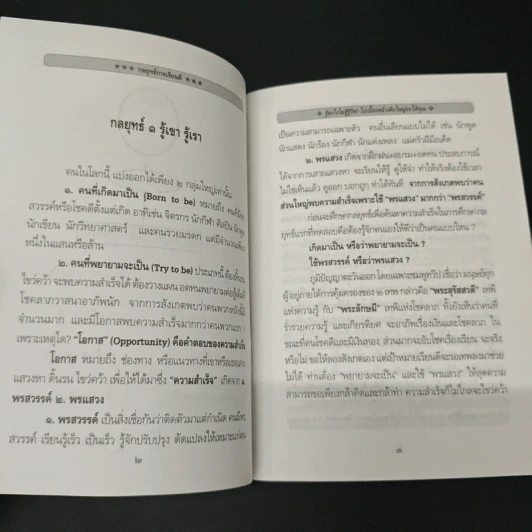 ★★★ กลยุทธ์การเรียนดี ★★★
กลยุทธ์ ๑ รู้เขา รู้เรา
คนในโลกนี้ แบ่งออกได้เพียง ๒ กลุ่มใหญ่เท่านั้น
๑. คนที่เกิดมาเป็น (Born to be) หมายถึง คนมีพร
สวรรค์หรือโชคดีตั้งแต่เกิด อาทิเช่น จิตรกร นักกีฬา ศิลปิน นักพูด
นักเขียน นักวิทยาศาสตร์ และคนรวยมรดก แต่มีจำนวนเพียง
หนึ่งในแสนหรือล้าน
๒. คนที่พยายามจะเป็น (Try to be) ประเภทนี้ ต้องดิ้นรน
ไขว่คว้า จะพบความสำเร็จได้ ต้องวางแผน อดทนพยายามต่อสู้
โชคลาภวาสนาอาภัพนัก จากการสังเกตพบว่าคนพวกหลังนี้
จำนวนมาก และมีโอกาสพบความสำเร็จมากกว่าคนพวกแรก
เพราะเหตุใด? "โอกาส" (Opportunity) คือคำตอบของความสำเร็จ
โอกาส หมายถึง ช่องทาง หรือแนวทางที่เขาหรือเธอ
แสวงหา ดิ้นรน ไขว่คว้า เพื่อให้ได้มาซึ่ง "ความสำเร็จ" เกิดจาก ๑.
พรสวรรค์ ๒. พรแสวง
๑. พรสวรรค์ เป็นสิ่งเชื่อกันว่าติดตัวมาแต่กำเนิด คนมีพร
สวรรค์ เรียนรู้เร็ว เป็นเร็ว รู้จักปรับปรุง ดัดแปลงให้เหมาะแก่ตน
๒
เป็นความสามารถเฉพาะตัว คนอื่นเลียนแบบไม่ได้ เช่น นักพูด
นักแสดง นักร้อง นักกีฬา นักแต่งเพลง แม่ครัวฝีมือเด็ด
๒. พรแสวง เกิดจากฝึกฝน+อบรม+อดทน ประสบการณ์
ได้จากการเสาะแสวงหา จะเรียนให้รู้ ดูให้จำ ทำให้จริงต้องใช้เวลา
ไม่ใช่เห็นแล้ว ดูออก บอกถูก ทำได้ทันที จากการสังเกตพบว่าคน
ส่วนใหญ่พบความสำเร็จเพราะใช้ "พรแสวง" มากกว่า "พรสวรรค์"
ก่อนจะศึกษากลยุทธ์เพื่อค้นหาความสำเร็จในการศึกษา กล
ยุทธ์แรกที่ทดสอบคือต้องรู้จักตนเองให้ดีว่าเป็นคนแบบไหน ?
เกิดมาเป็น หรือว่าพยายามจะเป็น ?
ใช้พรสวรรค์ หรือว่าพรแสวง ?
ภูมิปัญญาตะวันออก โดยเฉพาะชมพูทวีป เชื่อว่า มนุษย์ทุก
ผู้ อยู่ภายใต้การคุ้มครองของ ๒ เทพ กล่าวคือ "พระสุรัสสวดี" เทพี
แห่งความรู้ กับ "พระลักษมี" เทพีแห่งโชคลาภ ทั้งยังเห็นว่าคนที่
ร่ำรวยความรู้ และเกียรติยศ จะอาภัพเรื่องเงินและโชคลาภ ใน
ขณะที่คนโชคดีและมีเงินทอง ส่วนมากจะอับโชคเรื่องเรียน จะจริง
หรือไม่ ขอให้ลองสังเกตเอง แต่เป้าหมายเรียนดีจะรอเทพลงมาช่วย
ไม่ได้ ท่านต้อง "พยายามจะเป็น" และใช้ "พรแสวง" ให้สุดความ
สามารถขอเพียงกล้าคิดและกล้าทำ ความสำเร็จก็ไม่ไกลจะไขว่คว้า
๓